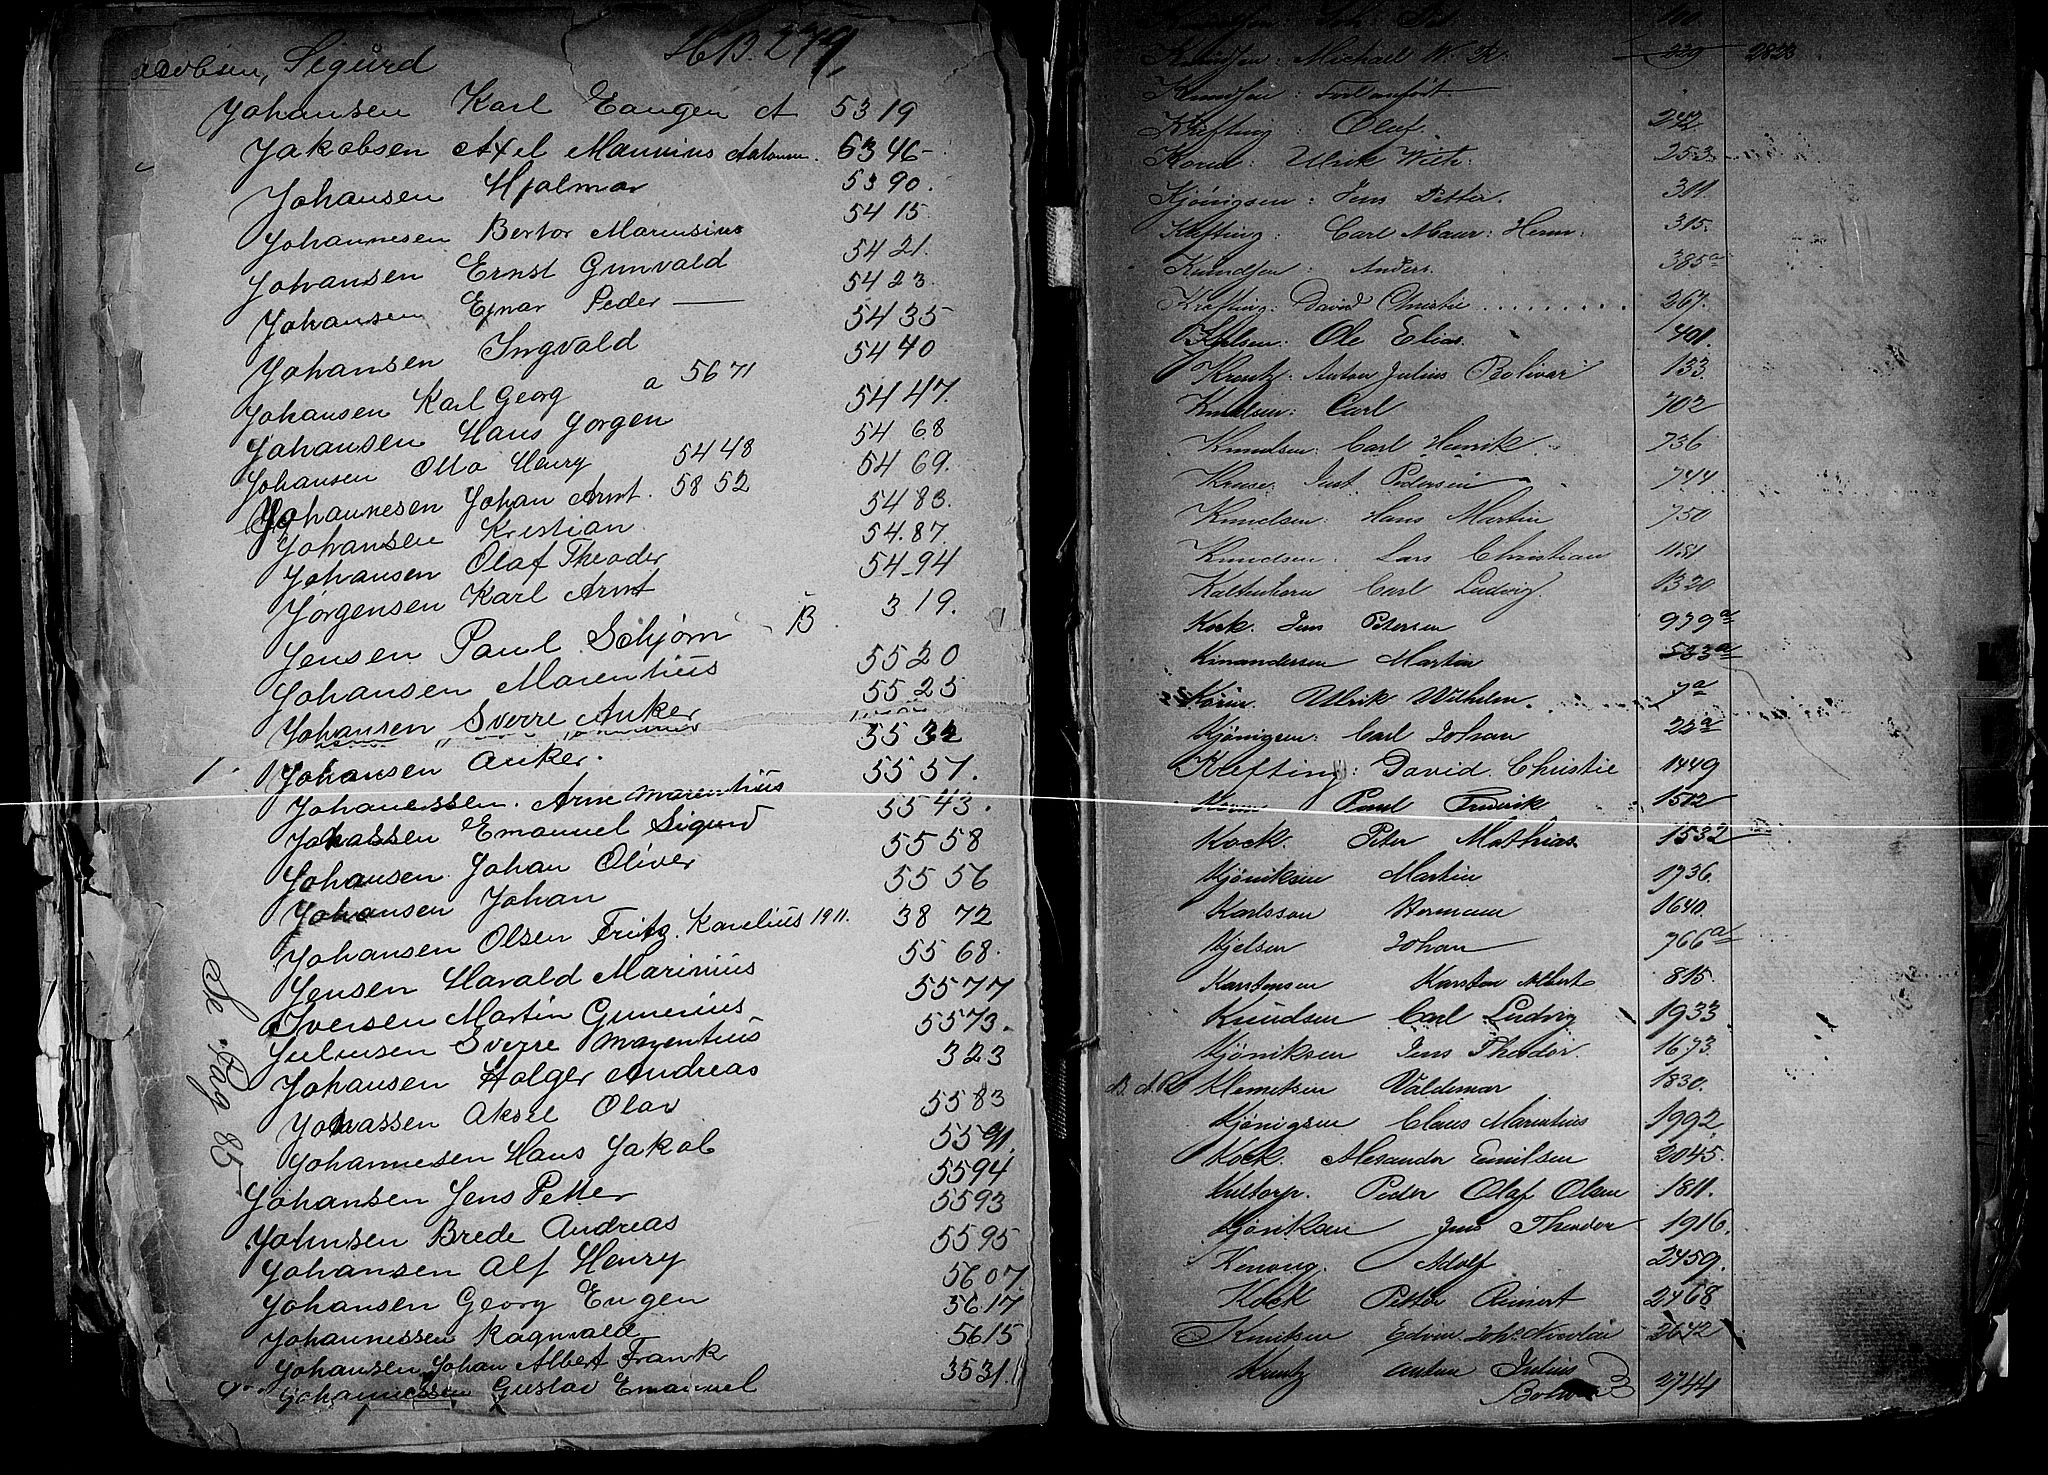 Sigurd HB. 279
Johansen Karl Eaugen A 5319
Jakobsen Axel Mauvius 5346
Johansen Hjalmar 5390.
Johannesen Bertor Marensius 5415
Johansen Ernst Gunvald 5421.
Johansen Ejnar Peder — 5423
Johansen Ingvald 5435
Johansen Karl Georg a 5671 5440
Johansen Hans Jorgen 5447.
Johansen Otto Henry 5448 5468
Johannesen Johan Arnt. 5852 5469.
Johansen Kristian 5483.
Johansen Olaf Theoder 54.87.
Jørgensen Karl Arnt 5494
Jensen Paul Schjørn B. 319.
Johansen Marentius 5520
Johansen Sverre Anker 5525
Johansen Anker. 5532
Johanessen. Arne Marentius 5551.
Johassen Emanuel Sigurd 5543.
Johansen Johan Oliver 5558
Johansen Johan 5556
Johansen Olsen Fritz. Karelius 1911. 3872
Jensen Harald Marinius 5568.
Iversen Martin Gunerius 5577
Juliusen Sverre Marentius 5573.
Johansen Holger Andreas 323
Johassen Aksel Olav 5583
Johannesen Hans Jakob 5591.
Johansen Jens Petter 5594
Johnsen Brede Andreas 5593
Johansen Alf Henry 5595
Johansen Georg Eugen 5607.
Johannessen Ragnvald 5617
Johansen Johan Albert Frank 5615
Johannessen Gustav Emanuel 3531.
Se Pag 85
Knudsen: Michael W. K. 229 2823
Knudsen:
Krefting: Oluf. 242
Ulrik Wilh: 253
Kjønigsen: Jens Petter. 301
Krefting: Carl Maur: Herm: 315.
Knudsen: Anders. 385a
Krefting: David Christie 267.
Ole Elias. 401.
Kreutz: Anton Julius Bolivar 133.
Knudsen: Carl 702
Knudsen: Carl Henrik. 736
Kruse. Just Pedersen 744
Knudsen: Hans Martin 750
Knudsen: Lars Christian 1151
Kaltenborn Carl Ludvig. 1320
Kock. Jens Petersen 979a
Kinandersen Martin 533a
Korin Ulrik Wilhelm. 7a
Kjønigsen: Carl Johan 22a
Krefting: David. Christie 1449
Paul Fredrik 1512
Kock. Peter Mathias 1532
Kjøniksen Martin 1736.
Karlsson Hermann 1640.
Kjelsen Johan 766a
Karstensen Karsten Albert 815.
Knudsen Carl Ludvig 1933
Kjøniksen Jens Theodor. 1673.
Valdemar 1830.
Kjønigsen Claus Marentius 1992.
Kock. Alexander Emilsen 2045.
Peder Olaf Olsen 1811.
Kjøniksen Jens Theodor 1916.
Adolf 2459.
Kock Petter Reinert 2468
Knutsen Edvin Joh: Nicolai 2642
Kreutz Anton Julius
Bolivar 2744